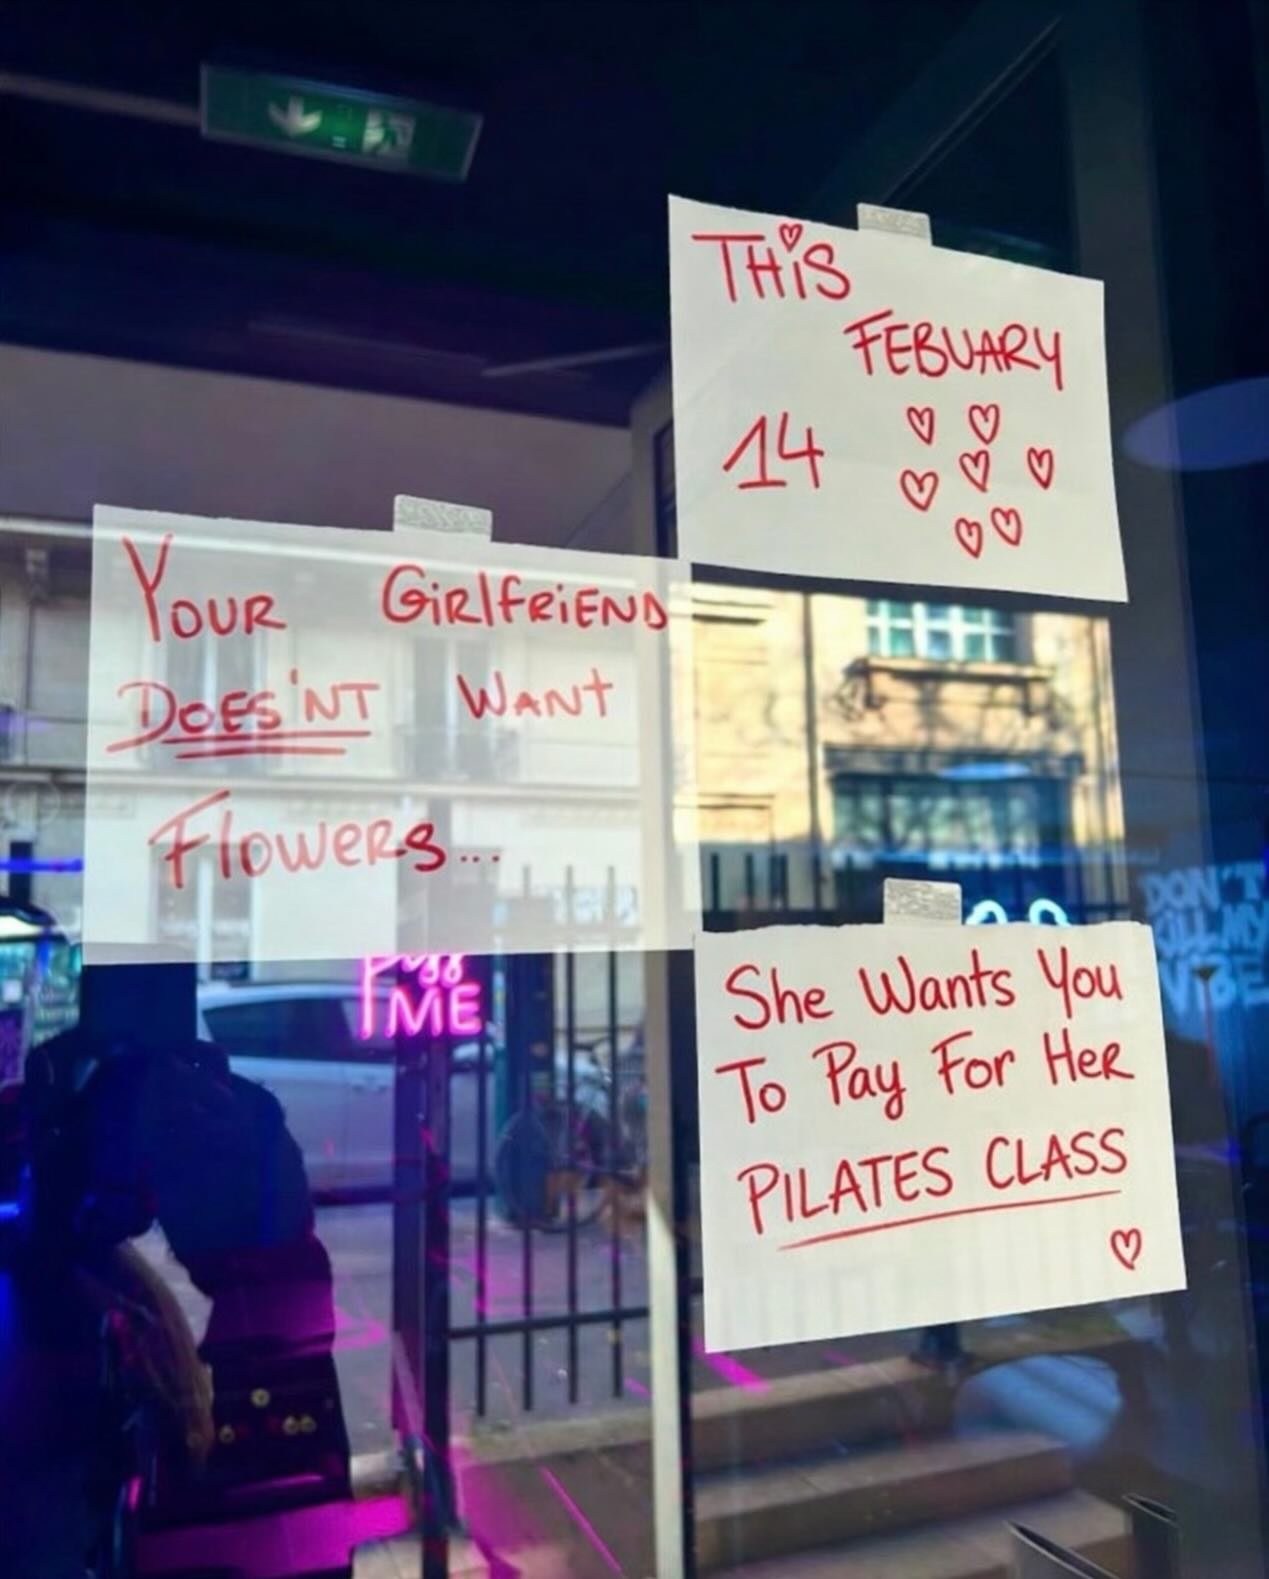 THiS
FEBUARY
14
YOUR GiRlfRiEND
DOES'NT WANT
Flowers...
She Wants You
To Pay For Her
PILATES CLASS
ME
DON'T
KILL MY
VIBE